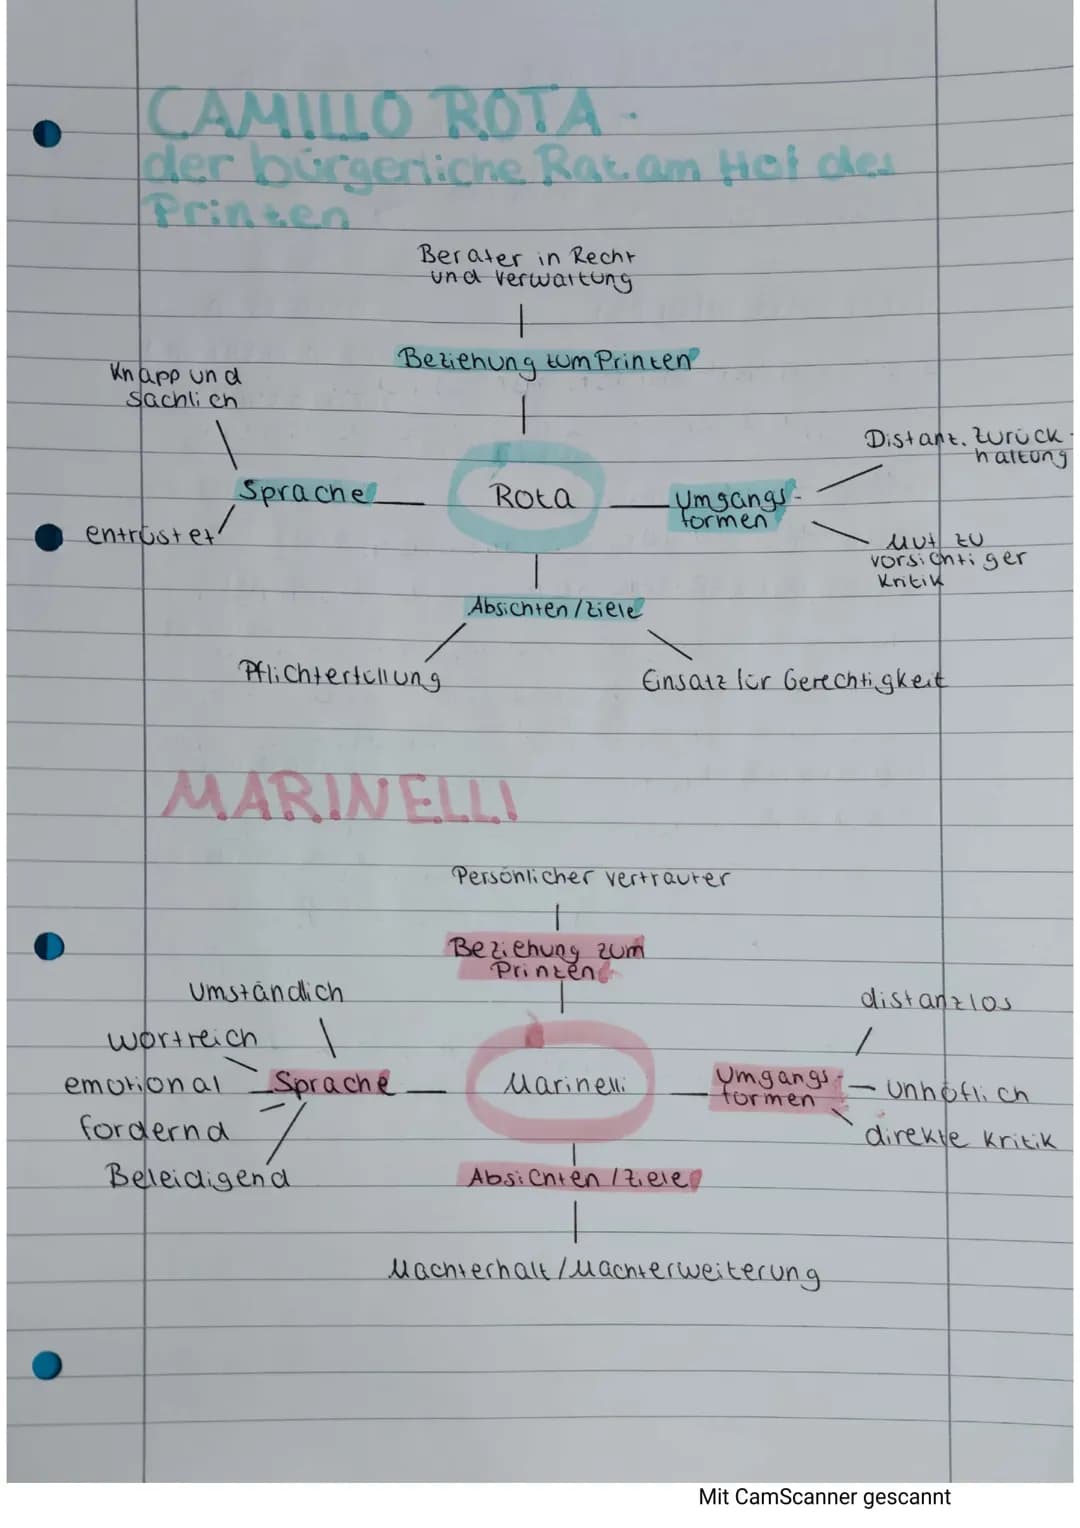 CAMILLO ROTA -
der bürgerliche Rat am Hof des
Prinzen
Berater in Recht
und Verwaltung
Beziehung zum Prinzen
Knapp und
sachlich
Distanz, Zurück-
haltung
Sprache
Rota
Umgangs-
formen
entrüstet
Mut zu
vorsichtiger
Kritik
Absichten/Ziele
Pflichterfüllung
Einsatz für Gerechtigkeit
MARINELLI
Persönlicher Vertrauter
Beziehung zum
Prinzen
Umständlich
distanzlos
wortreich
emotional
Sprache
Marinelli
Umgangs-
formen
unhöflich
fordernd
direkte Kritik
Beleidigend
Absichten/Ziele
Machterhalt/Machterweiterung
Mit CamScanner gescannt